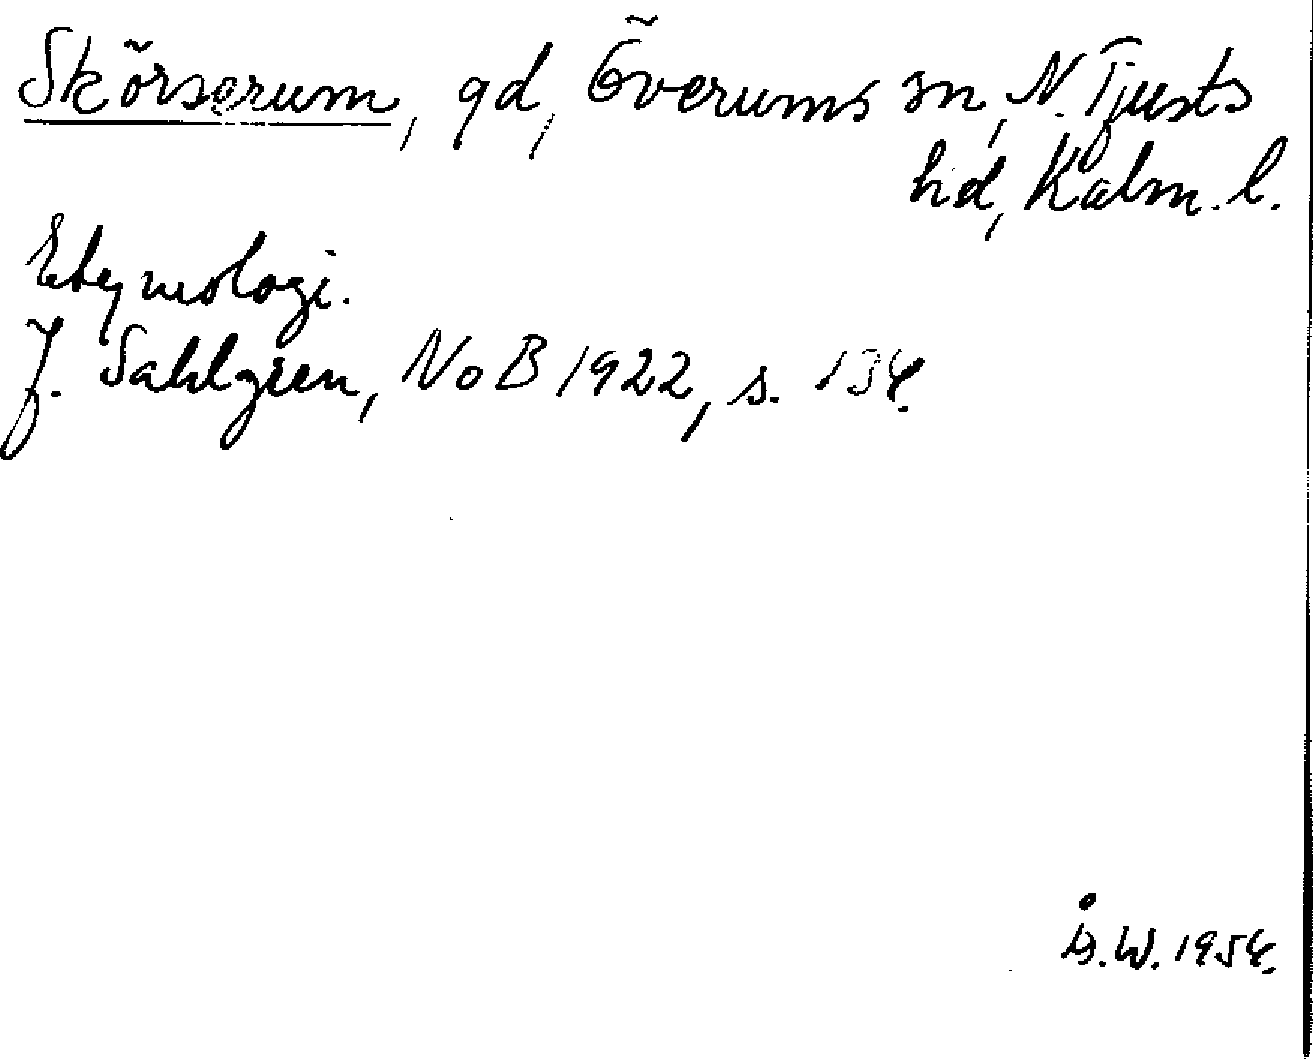 Skörserum, gd, Överums sn, N. Tjusts
hd, Kalm. l.
Etymologi.
J. Sahlgren, NoB 1922, s. 134.
Å.W. 1954.